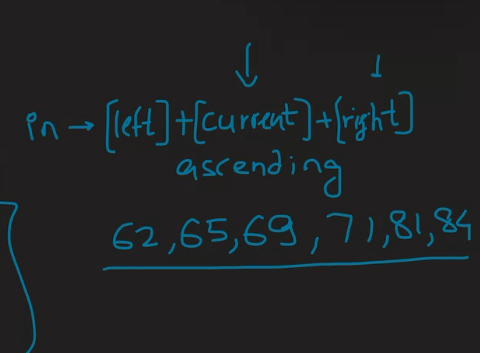 in → [left] + [current] + [right]
ascending
62, 65, 69, 71, 81, 84